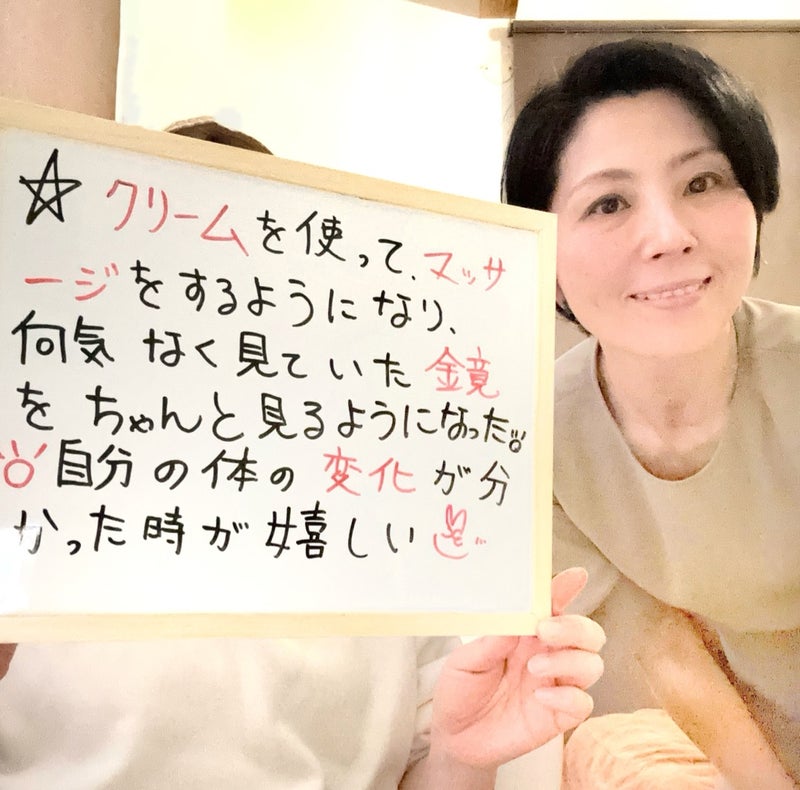 ☆ クリームを使って、マッサ
ージをするようになり、
何気なく見ていた鏡
をちゃんと見るようになった
自分の体の変化が分
かった時が嬉しい